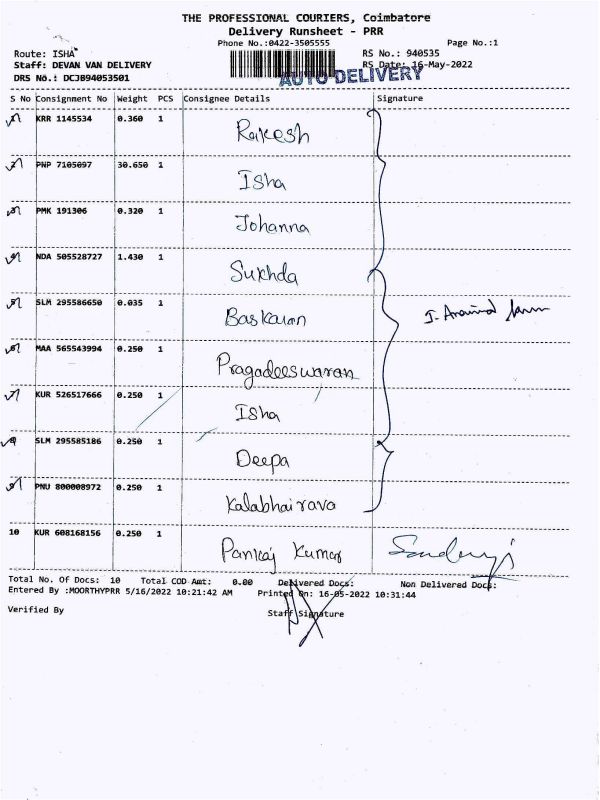 THE PROFESSIONAL COURIERS, Coimbatore
Delivery Runsheet - PRR
Phone No.:0422-3505555 Page No.:1
Route: ISHA RS No.: 940535
Staff: DEVAN VAN DELIVERY RS Date: 16-May-2022
DRS No.: DCJB94053501 AUTO DELIVERY
S No Consignment No Weight PCS Consignee Details Signature
1 KRR 1145534 0.360 1 Rakesh
2 PNP 7105097 30.650 1 Isha
3 PMK 191306 0.320 1 Johanna
4 NDA 505528727 1.430 1 Sukhda
5 SLM 295586650 0.035 1 Baskaran
6 MAA 565543994 0.250 1 Pragadeeswaran
7 KUR 526517666 0.250 1 Isha
8 SLM 295585186 0.250 1 Deepa
9 PNU 800008972 0.250 1 Kalabhairava
10 KUR 608168156 0.250 1 Pankaj Kumar
Total No. Of Docs: 10 Total COD Amt: 0.00 Delivered Docs: Non Delivered Docs:
Entered By :MOORTHYPRR 5/16/2022 10:21:42 AM Printed On: 16-05-2022 10:31:44
Verified By Staff Signature